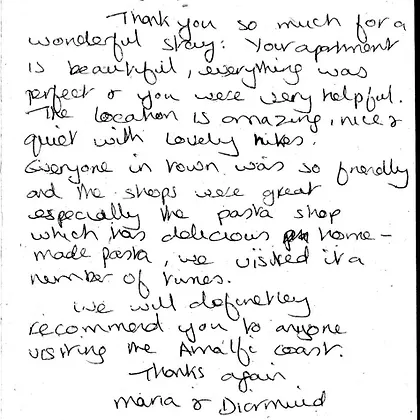 Thank you so much for a
wonderful stay. Your apartment
is beautiful, everything was
perfect & you were very helpful.
The location is amazing, nice &
quiet with lovely hikes.
Everyone in town was so friendly
and the shops were great
especially the pasta shop
which has delicious home-
made pasta, we visited it a
number of times.
We will definetley
recommend you to anyone
visiting the Amalfi coast.
Thanks again
Maria & Diarmuid